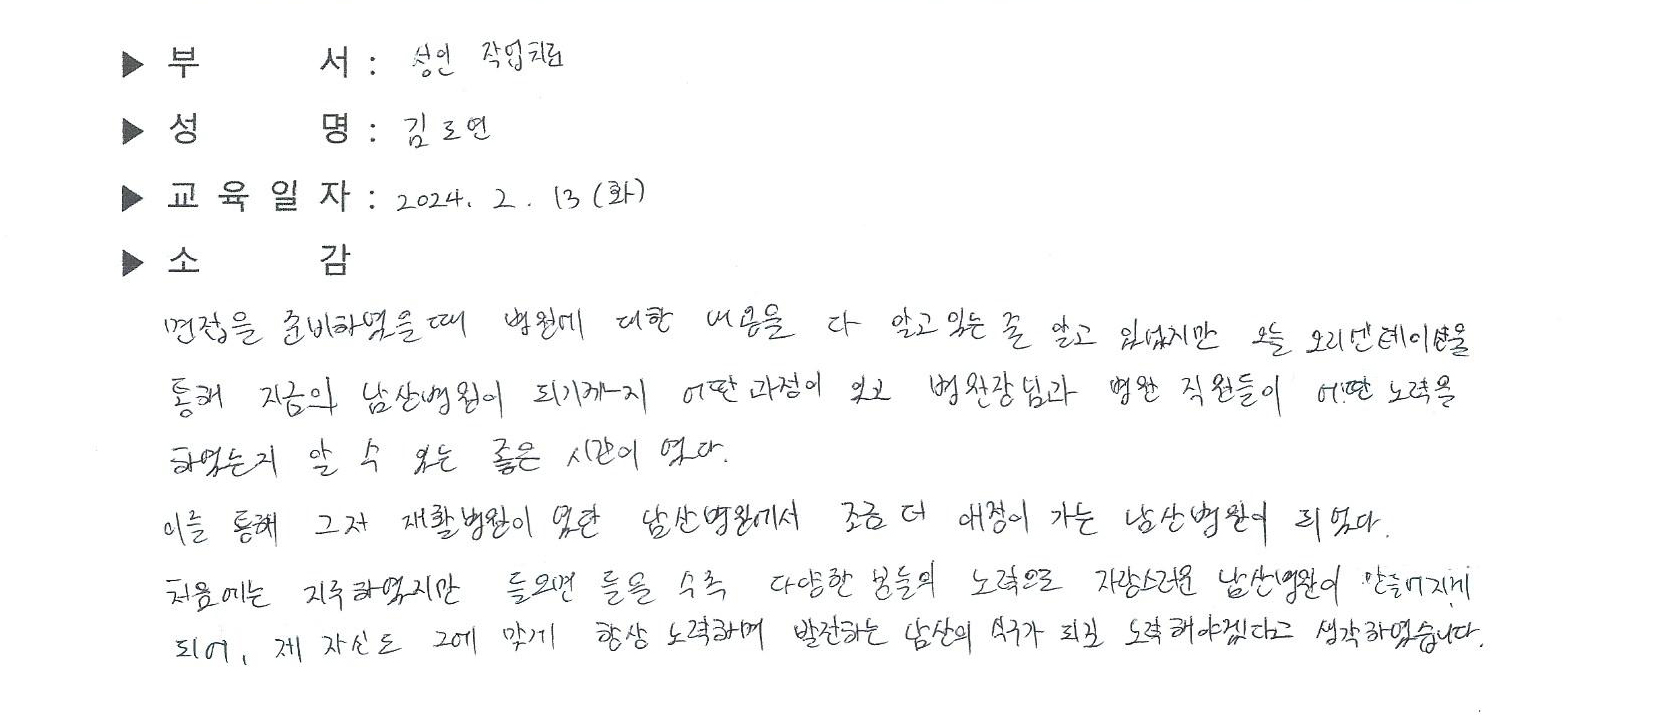 ▶ 부 서 : 성인 작업치료
▶ 성 명 : 김도연
▶ 교육일자 : 2024. 2. 13 (화)
▶ 소 감
면접을 준비하였을때 병원에 대한 내용을 다 알고있는 줄 알고 있었지만 오늘 오리엔테이션을
통해 지금의 남산병원이 되기까지 어떤과정이 있고 병원장님과 병원 직원들이 어떤 노력을
하였는지 알 수 있는 좋은 시간이 였다.
이를 통해 그저 재활병원이 였던 남산병원에서 조금 더 애정이 가는 남산병원이 되었다.
처음에는 지루하였지만 들으면 들을 수록 다양한 분들의 노력으로 자랑스러운 남산병원이 만들어지게
되어, 제 자신도 그에 맞게 항상 노력하며 발전하는 남산의 식구가 되길 노력해야겠다고 생각하였습니다.